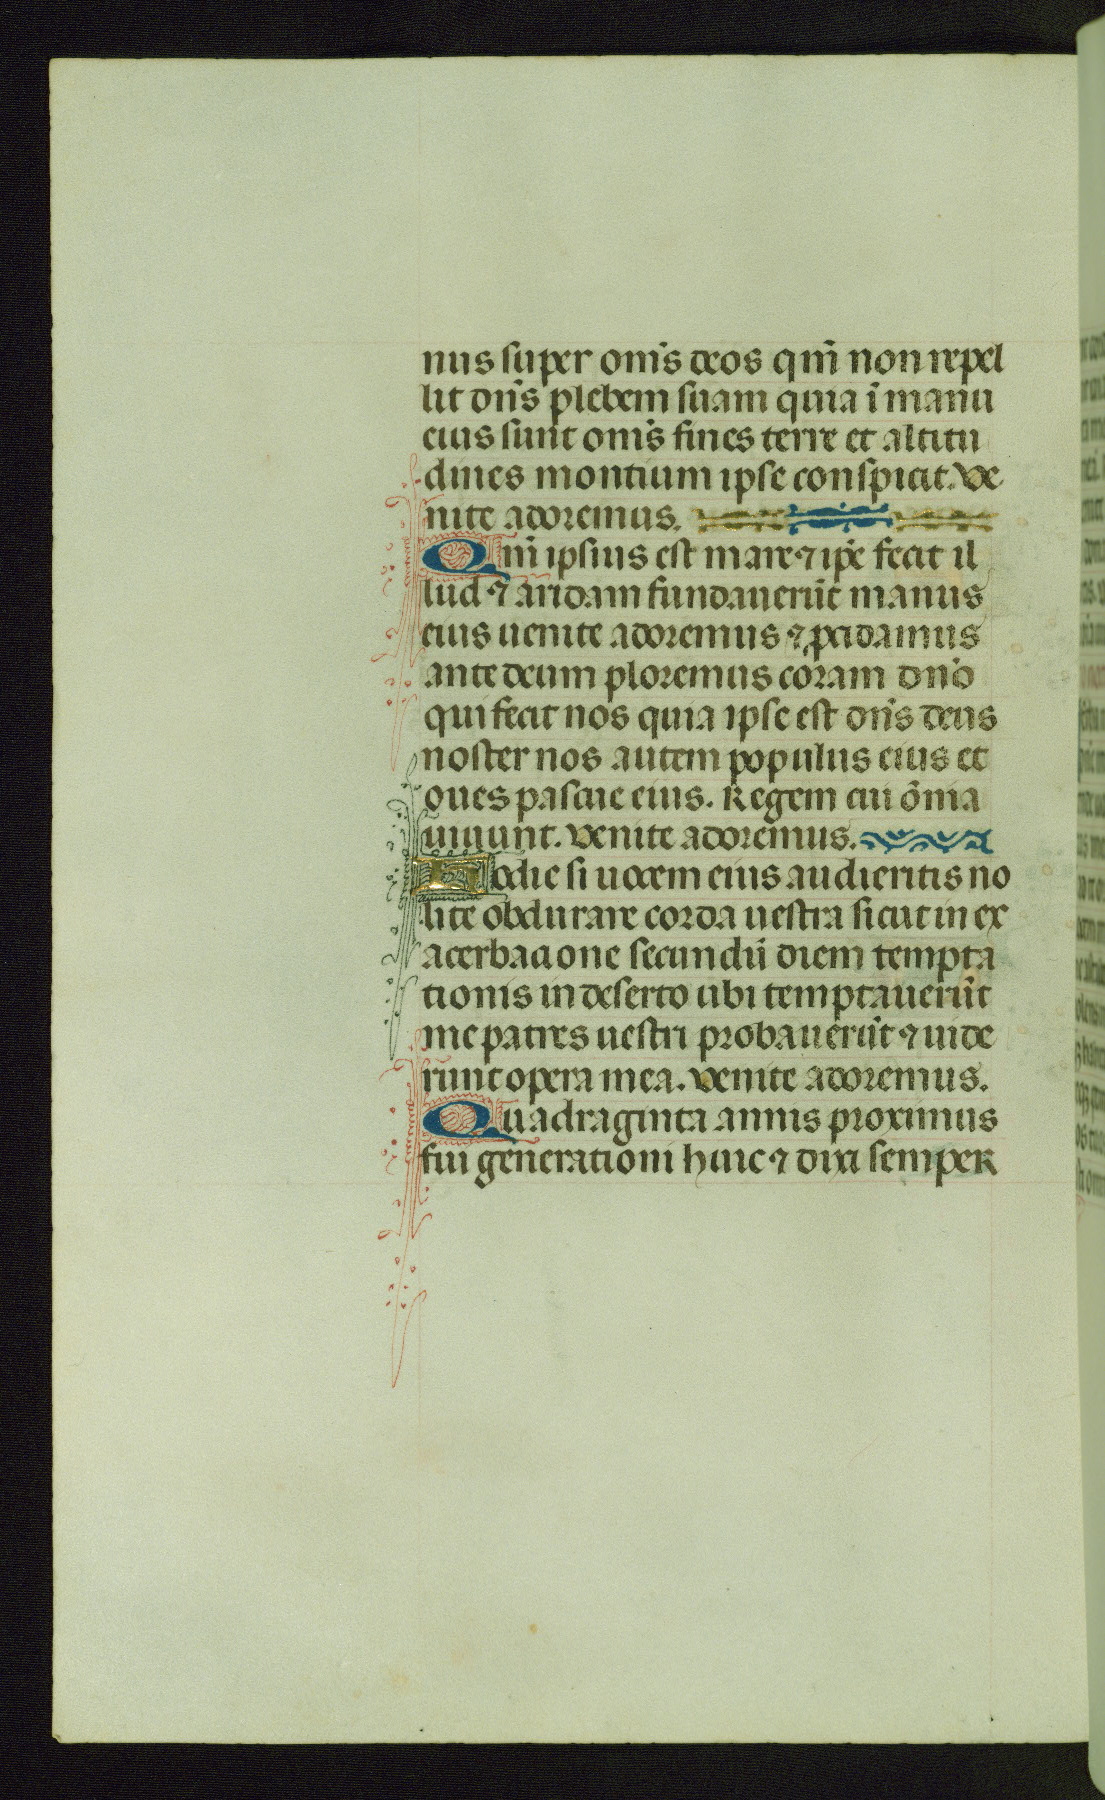 nus super om̅s deos qm̅ non repel
lit dn̅s plebem suam quia i̅ manu
eius sunt om̅s fines terre et altitu
dines montium ipse conspicit. Ve
nite adoremus.
Qm̅ ipsius est mare ⁊ ip̅e fecit il
lud ⁊ aridam fundaueru̅t manus
eius uenite adoremus ⁊ ꝓcidamus
ante deum ploremus coram dn̅o
qui fecit nos quia ipse est dn̅s deus
noster nos autem populus eius et
oues pascue eius. Regem cui o̅nia
uiuunt. Venite adoremus.
Hodie si uocem eius audieritis no
lite obdurare corda uestra sicut in ex
acerbacione secundu̅ diem tempta
tionis in deserto ubi temptaueru̅t
me patres uestri probaueru̅t ⁊ uide
runt opera mea. Venite adoremus.
Quadraginta annis proximus
fui generationi huic ⁊ dixi semper